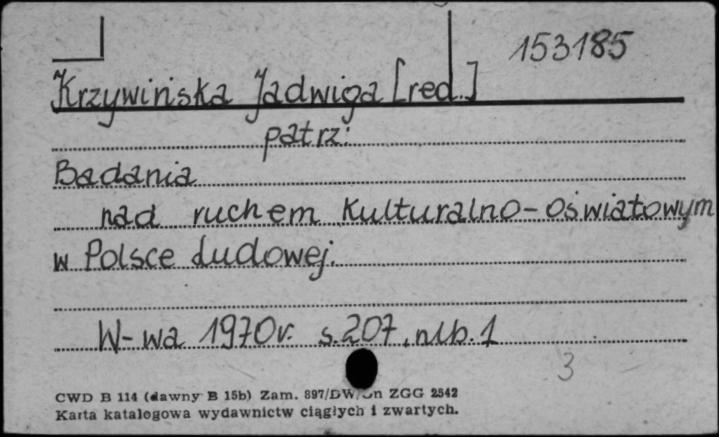 153185
Krzywińska Jadwiga [red.]
patrz:
Badania
nad ruchem kulturalno-oświatowym
w Polsce Ludowej.
W-wa 1970r. s.207, nlb.1
3
CWD B 114 (dawny B 15b) Zam. 897/DW/ ZGG 2542
Karta katalogowa wydawnictw ciągłych i zwartych.